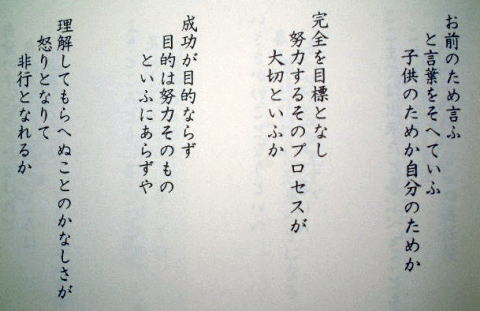 お前のため言ふ
と言葉をそへていふ
子供のためか自分のためか
完全を目標となし
努力するそのプロセスが
大切といふか
成功が目的ならず
目的は努力そのもの
といふにあらずや
理解してもらへぬことのかなしさが
怒りとなりて
非行となれるか